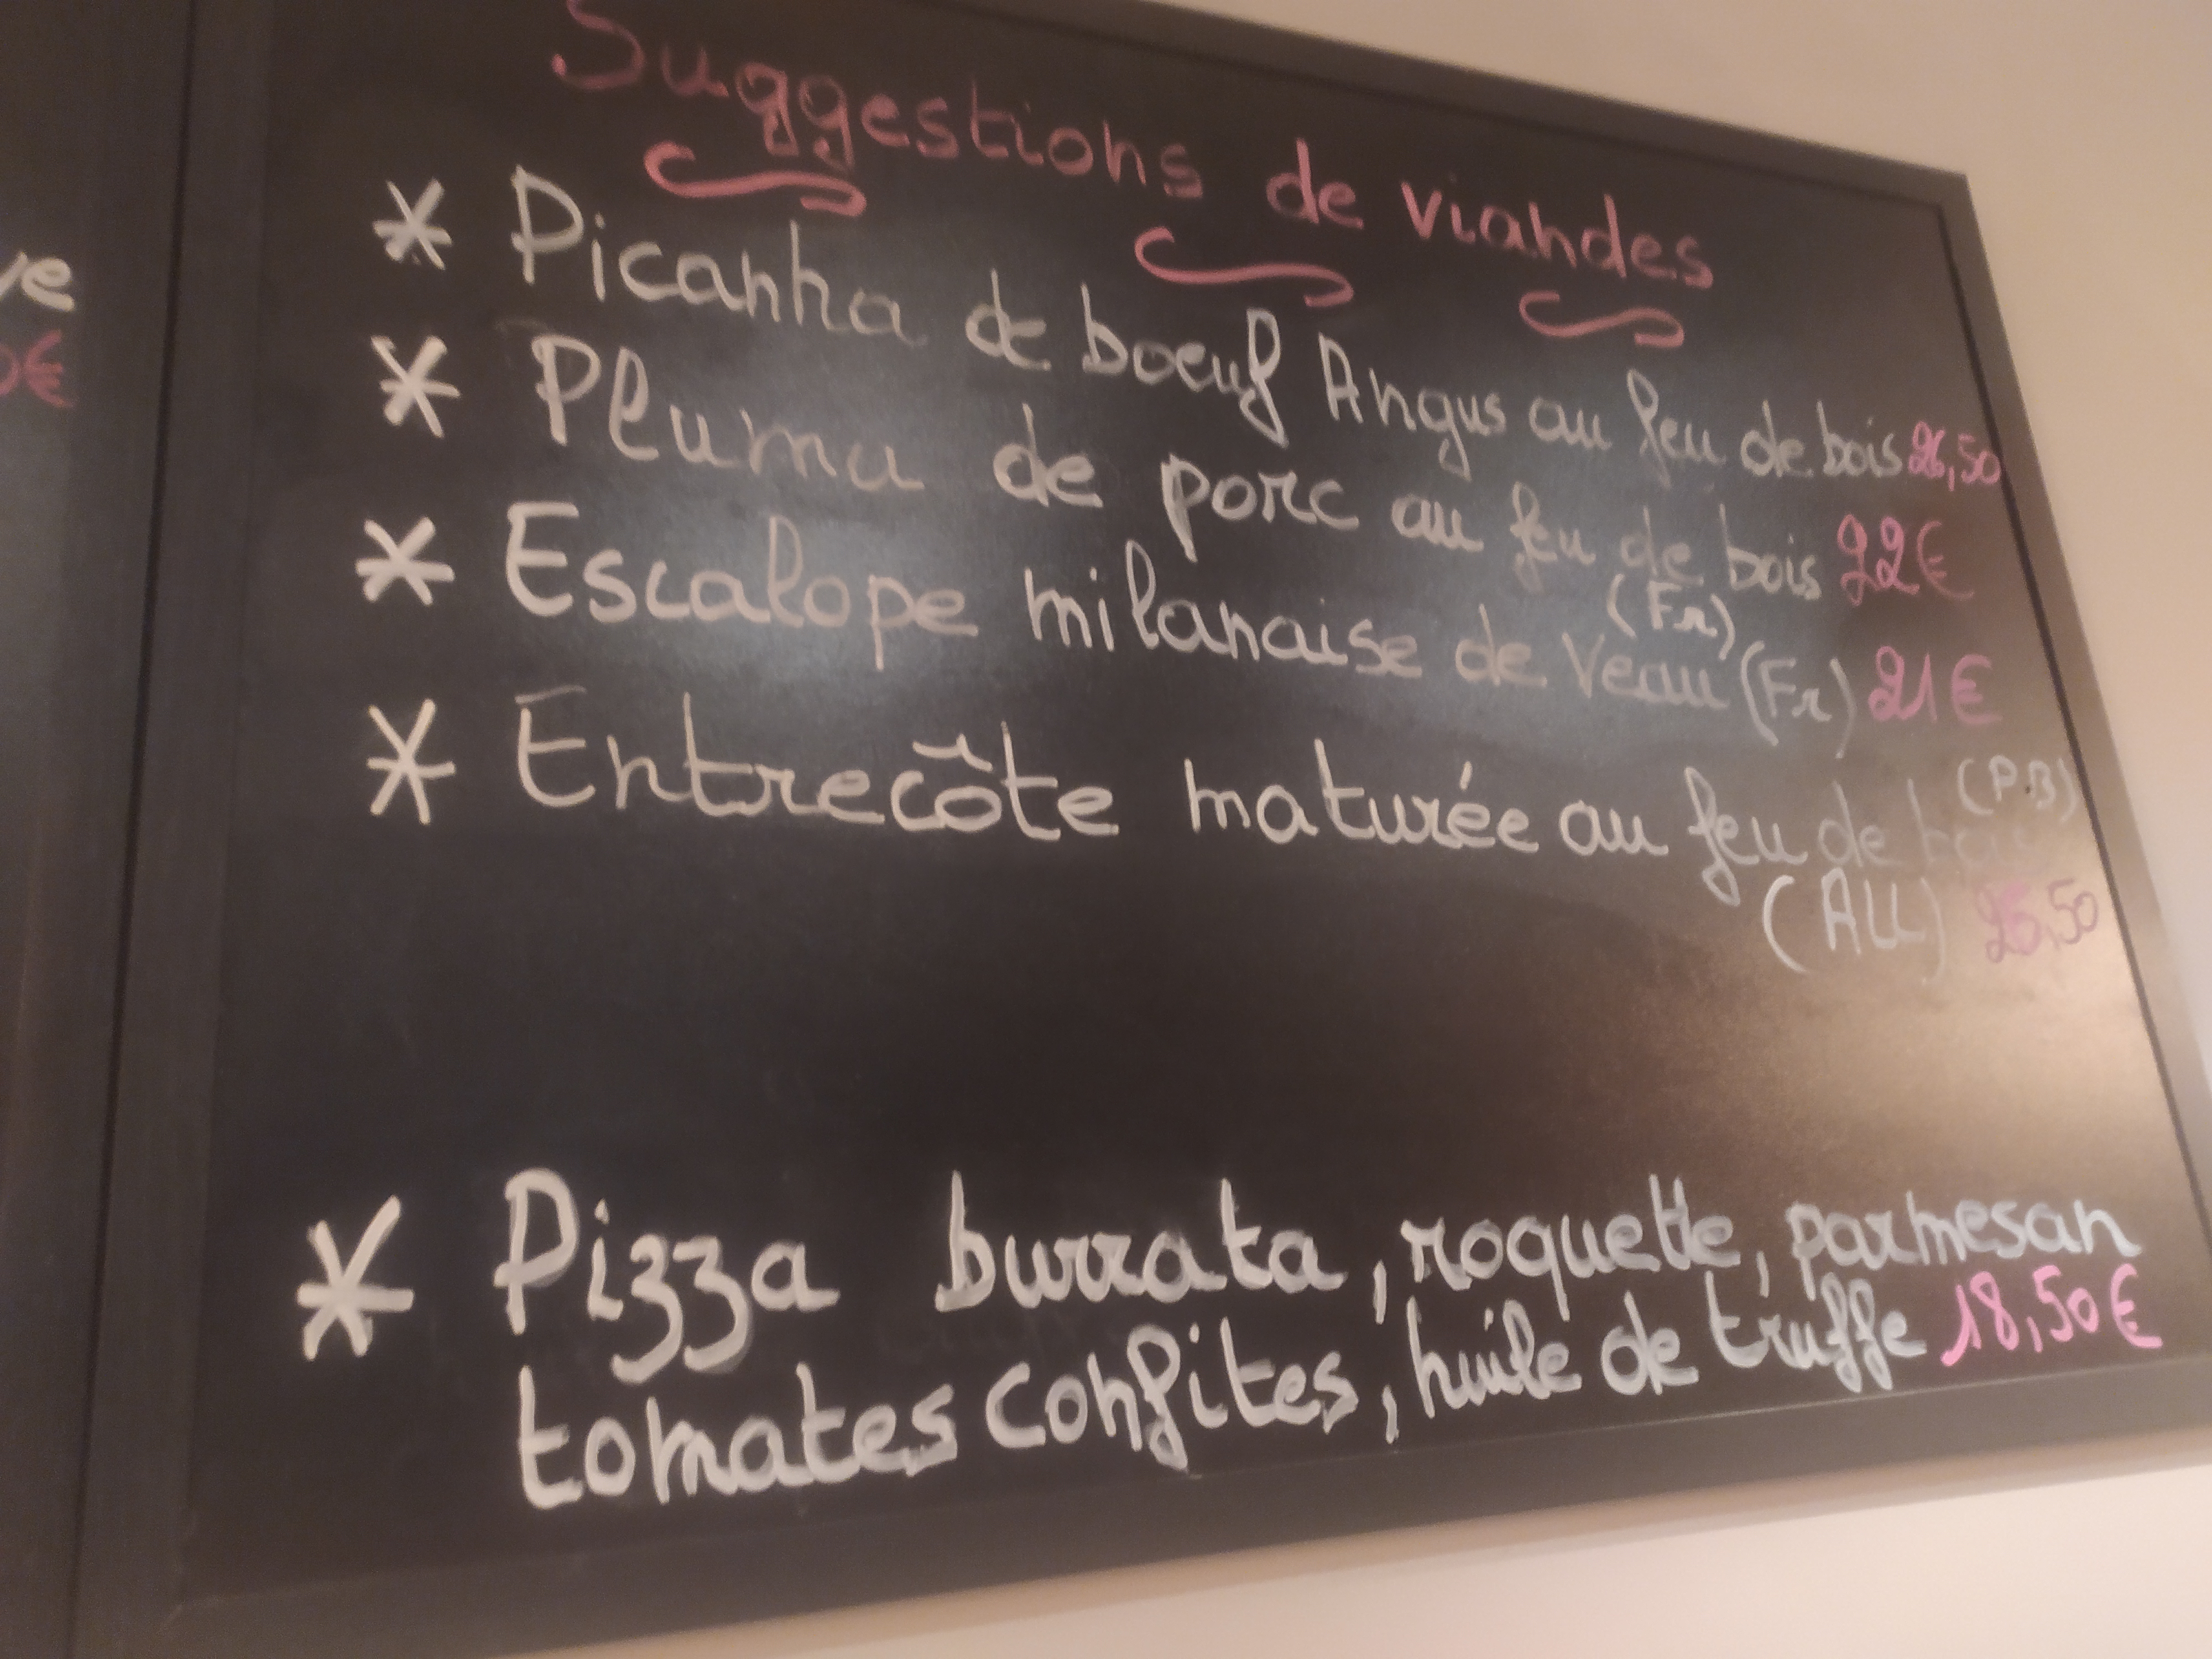 Suggestions de viandes
* Picanha de boeuf Angus au feu de bois 26,50
* Pluma de porc au feu de bois 22€
(Fr)
* Escalope milanaise de veau (Fr) 21€
(P.B)
* Entrecôte maturée au feu de
(ALL) 26,50
* Pizza burrata, roquette, parmesan
tomates confites, huile de truffe 18,50€